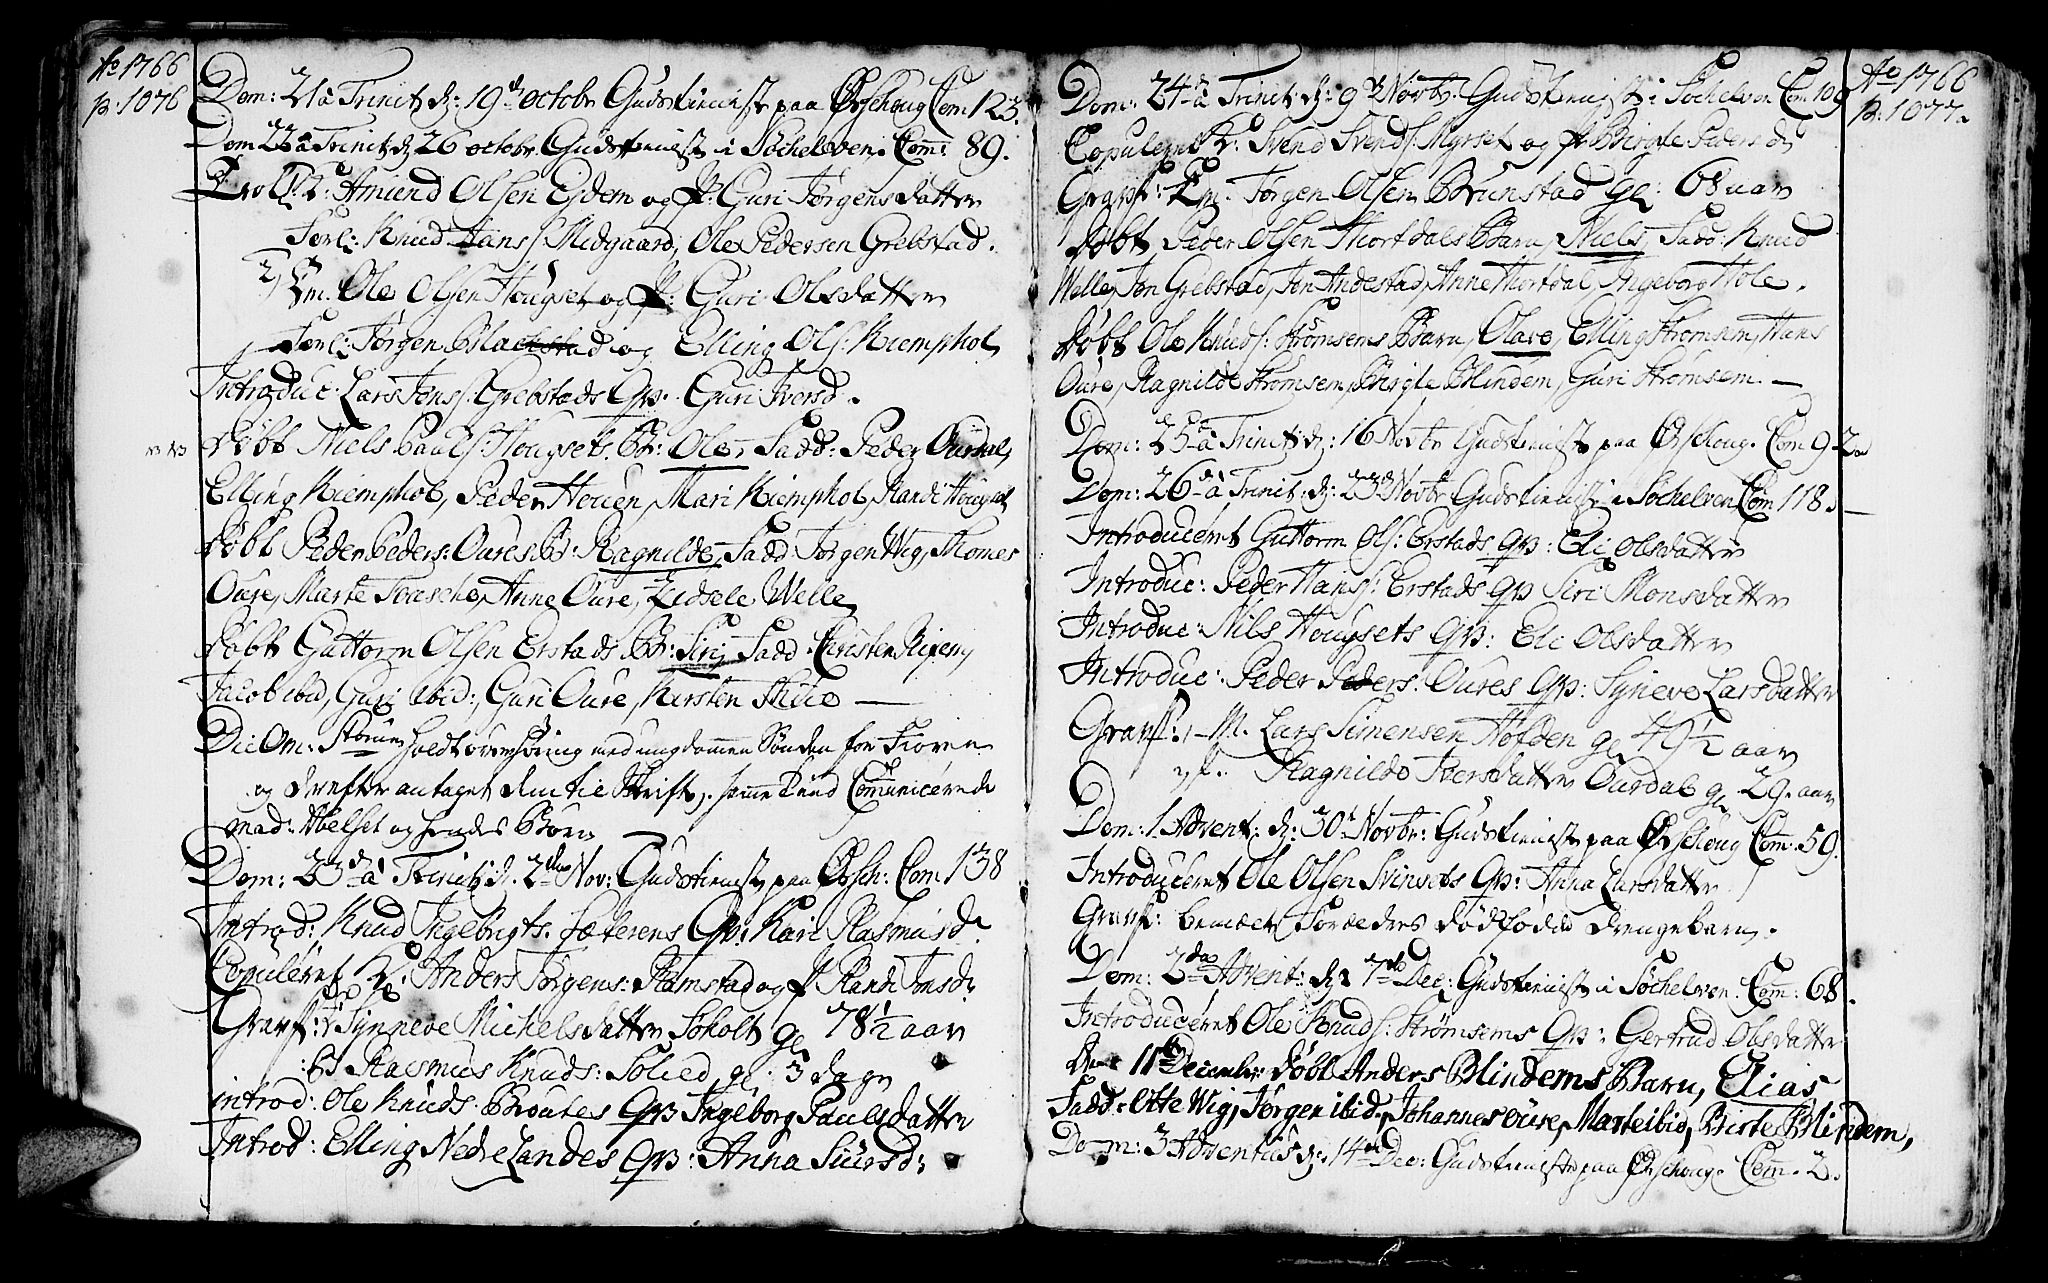 Ao 1766
p: 1076
Dom: 21 à Trinit. d: 19de octobr Gudstieniste paa Ørschoug Com: 123.
Dom 22 à Trinit. d 26 octobr. Gudstieniste i Søchelven. Com: 89.
Trol. 1. Amund Olsen Ejdem og P: Guri Jørgens datter
Forl: Knud Hans: Midgaard, Ole Pedersen Grebstad.
2) Em. Ole Olsen Hougset og P: Guri Olsdatter
Forl: Jørgen Blachstad og Elling Ols: Kiemphol
Introduc. Lars Jons: Grebstads Qv. Guri Iversd.
Døbt Niels Paals: Hougsets B: Ole, Fadd: Peder Ourdal,
Elling Kiemphol, Peder Houen, Mari Kiemphol, Randi Hougset
Døbt Peder Peders: Oures B: Ragnilde, Fadd Jørgen Wig, Thomes
Oure, Marte Toasche, Anne Oure, Zidsele Welle
Døbt Guttorm Olsen Erstads B: Siri, Fadd. Christen Ripen,
Jacob ibid, Guri ibid:, Guri Oure, Kirsten Thue —
Die Om: Storum holdt overhøring med ungdommen Sønden for Fioren
og derefter antaget dem til Skrift. samme tiid Communicerede
Mad: Abelset og hendes Børn
Dom: 23de à Trinit: d. 2den Nov: Gudstieniste paa Ørsch: Com. 138
Introd: Knud Ingebrigts. Sæterens Qv: Kari Rasmusd.
Copuleret K. Anders Jørgens: Ramstad og P Randi Jonsd:
Grafv: Synneve Michelsdatter Søholt gl 78 1/2 aar
B Rasmus Knuds: Solied gl. 3 dage
introd: Ole Knuds Broutes Qv Ingeborg Paulsdatter
Introd: Elling Nedre Landes Qv: Anna Siursd:
Ao 1766
p: 1077.
Dom: 24de à Trinit. d: 9de Novbr. Gudstieniste i Søchelven Com 109
Copuleret K: Svend Svends: Myrset og P Birgte Peders d
Grafv: Em. Jørgen Olsen Brunstad gl: 68 aar
Døbt Peder Olsen Hjortdals Barn, Niels, Fadd: Knud
Welle, Jon Grebstad, Jon Andestad, Anne Hjortdal, Ingeborg Hole.
Døbt Ole Knuds: Strømsens Barn, Olave, Elling Strømsem, Hans
Oure, Ragnilde Strømsem, Birgte Blindem, Guri Strømsem. —
Dom: 25 à Trinit: d: 16 Novbr Gudstieniste paa Ørschoug. Com 92.
Dom: 26de à Trinit. d: 23de Novbr: Gudstieniste i Søchelven Com 118. —
Introduceret Guttorm Ols: Erstads Qv: Eli Olsdatter
Introduc: Peder Hans: Erstads Qv Siri Monsdatter
Introduc: Nils Hougsets Qv: Eli Olsdatter
Introduc: Peder Peders: Oures Qv: Syneve Larsdatter
Grafv: 1. M. Lars Simensen Høfden gl 49 1/2 aar
2. P. Ragnilde Iversdatter Ourdal gl 29. aar
Dom: 1. Advent: d: 30te Novbr: Gudstieniste paa Ørschoug Com. 59.
Introduceret Ole Olsen Svinsets Qv: Anna Larsdatter
Grafv: bemelte dødfødde drengebarn.
Dom: 2den Advent: d: 7de Dec: Gudstieniste i Søchelven. Com: 68.
Introduceret Ole Knuds: Strømsems Qv: Gertrud Olsdatter
Den 11te December Døbt Anders Blindems Barn, Elias
Fadd: Otte Wig, Jørgen ibid., Johannes oure, Marte ibid, Birte Blindem,
Dom: 3 Adventus d: 14de Dec: Gudstieniste paa Ørschoug: Com. 2.